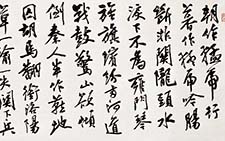 朝作猛虎行
暮作猛虎吟腸
斷非關隴頭水
淚下不為雍門琴
旌旗繽紛兩河道
戰鼓驚山欲傾
倒秦人半作燕地
囚胡馬翻銜洛陽
草一輸一失關下兵